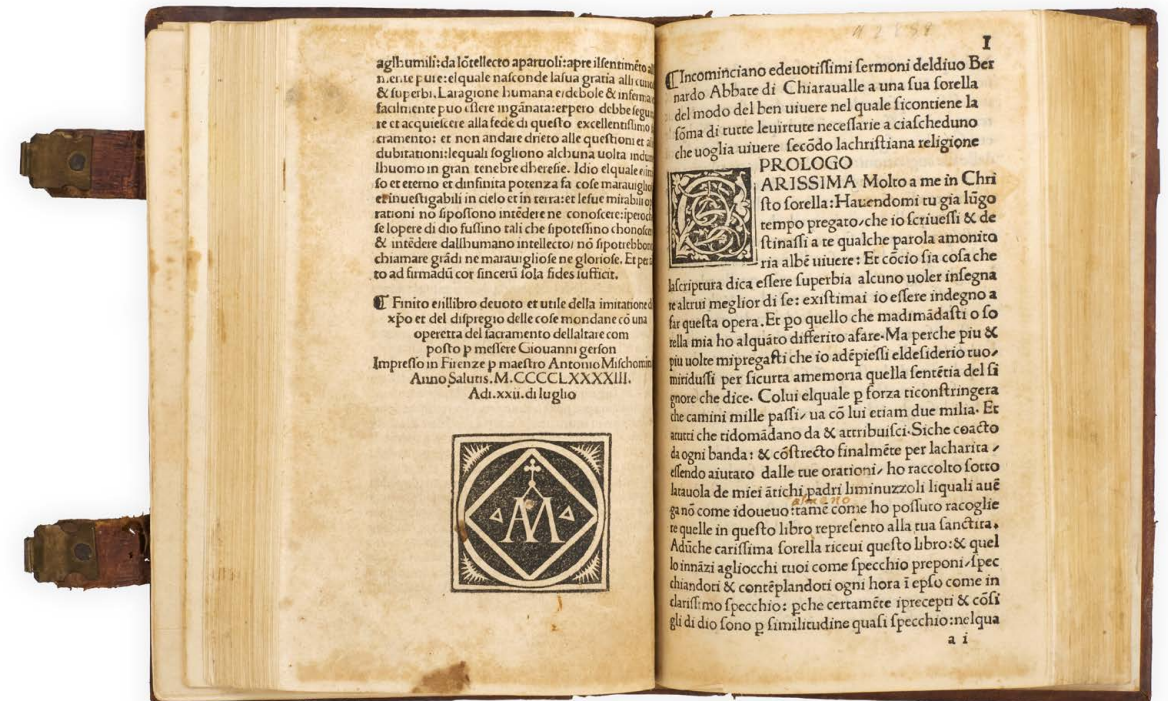 aglhumili: da lōtellecto aparuoli: apre ilsentimēto
mente pure: elquale nasconde lasua gratia alli
& superbi. Laragione humana e/debole & inferma
facilmente puo essere ingānata: erpero debbe
re et acquiescere alla fede di questo excellentissimo
cramento: et non andare drieto alle questioni et
dubitationi: lequali sogliono alchuna uolta
lhuomo in gran tenebre dheresie. Idio elquale
so et eterno et dinfinita potenza fa cose
et inuestigabili in cielo et in terra: et lesue mirabili
rationi nō sipossono intēdere ne conoscere: īperoch
se lopere di dio fussino tali che sipotessino
& intēdere dallhumano intellecto/ nō sipotrebbono
chiamare grādi ne marauigliose ne gloriose. Et
to ad firmādū cor sincerū sola fides sufficit.
¶ Finito eillibro deuoto et utile della imitatione
xp̄o et del dispregio delle cose mondane cō una
operetta del sacramento dellaltare com
posto p messere Giouanni gerson
Impresso in Firenze p maestro Antonio Mischomini
Anno Salutis. M.CCCCLXXXXIII.
Adi.xxii. di luglio
AM
I
¶ Incominciano edeuotissimi sermoni deldiuo Ber
nardo Abbate di Chiaraualle a una sua sorella
del modo del ben uiuere nel quale sicontiene la
sōma di tutte leuirtute necessarie a ciascheduno
che uoglia uiuere secōdo lachristiana religione
PROLOGO
CARISSIMA Molto a me in Chri
sto sorella: Hauendomi tu gia lūgo
tempo pregato/che io scriuessi & de
stinassi a te qualche parola amonito
ria albē uiuere: Et cōcio sia cosa che
lascriptura dica essere superbia alcuno uoler insegna
re altrui meglior di se: existimai io essere indegno a
far questa opera. Et po quello che madimādasti o so
rella mia ho alquāto differito afare. Ma perche piu &
piu uolte mipregasti che io adēpiessi eldesiderio tuo/
miridussi per sicurta amemoria quella sentētia del si
gnore che dice. Colui elquale p forza ticonstringera
che camini mille passi/ ua cō lui etiam due milia. Et
atutti che tidomādano da & attribuisci. Siche coacto
da ogni banda: & cōstrecto finalmēte per lacharita/
essendo aiutato dalle tue orationi/ ho raccolto sotto
latauola de miei ātichi padri liminuzzoli liquali auē
almeno
ga nō come idoueuo: tamē come ho possuto racoglie
te quelle in questo libro represento alla tua sanctita.
Adūche carissima sorella riceui questo libro: & quel
lo innāzi agliocchi tuoi come specchio preponi/spec
chiandoti & contēplandoti ogni hora ī epso come in
clarissimo specchio: pche certamēte iprecepti & cōsi
gli di dio sono p similitudine quasi specchio: nelqua
a i